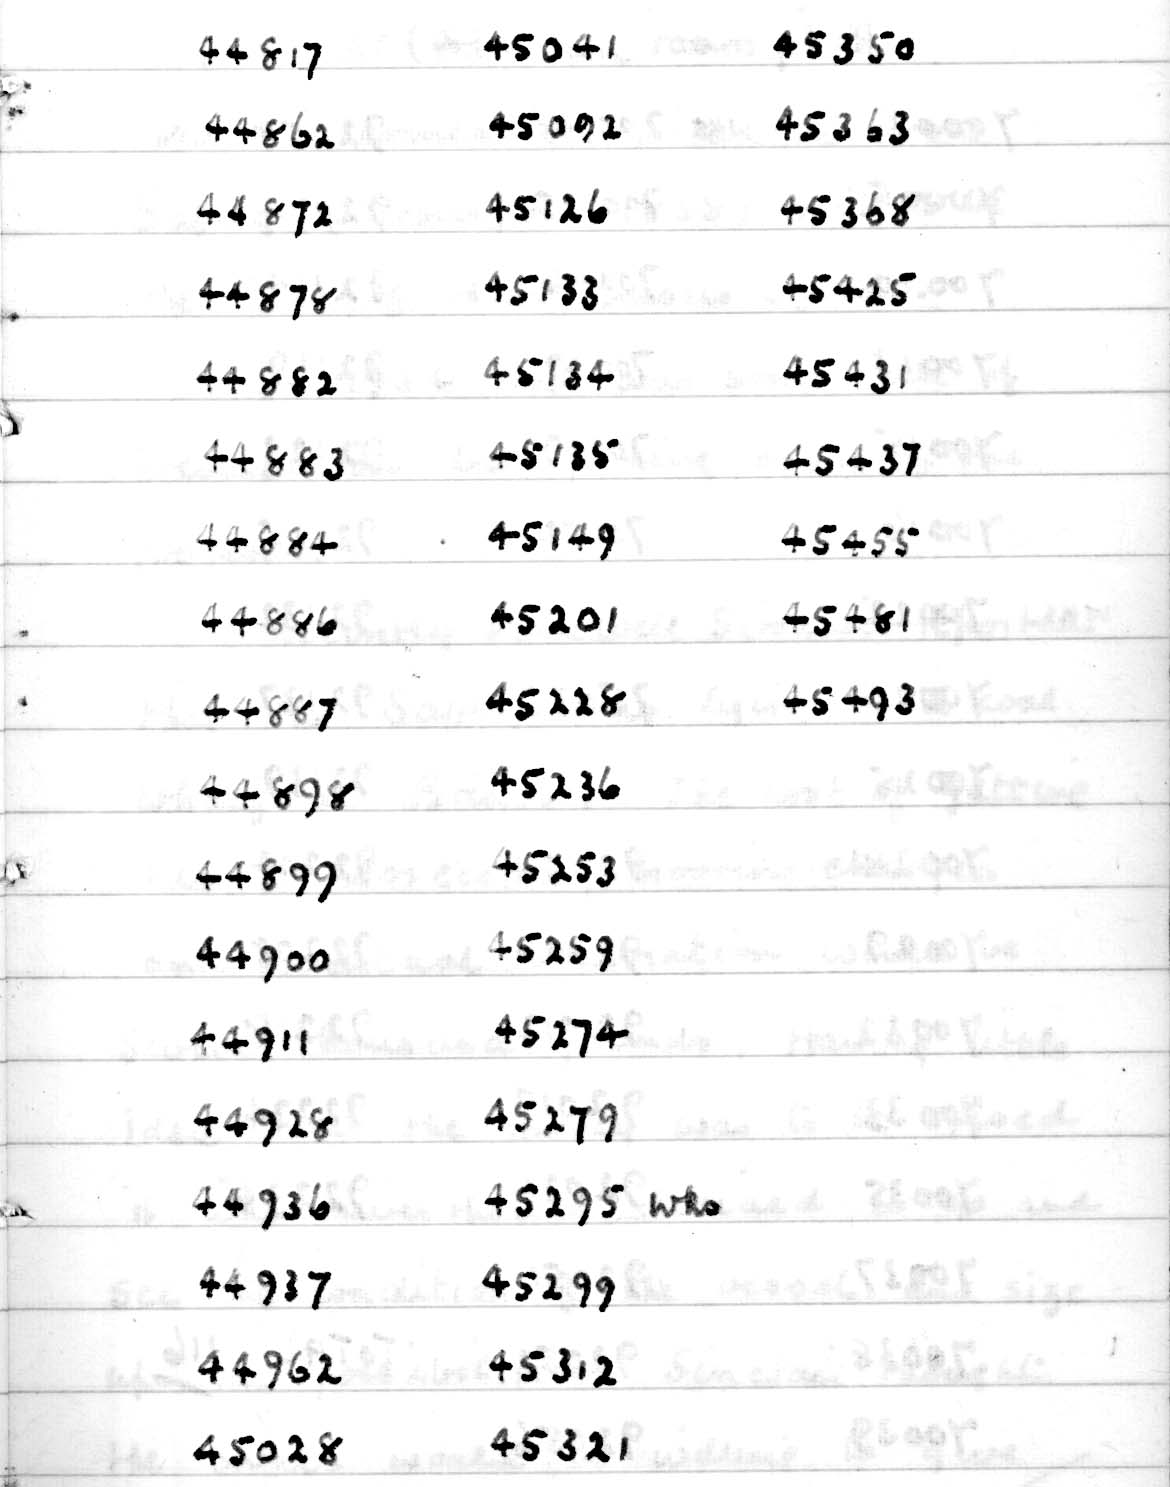 44817 45041 45350
44862 45092 45363
44872 45126 45368
44878 45133 45425
44882 45134 45431
44883 45135 45437
44884 45149 45455
44886 45201 45481
44887 45228 45493
44898 45236
44899 45253
44900 45259
44911 45274
44928 45279
44936 45295 who
44937 45299
44962 45312
45028 45321